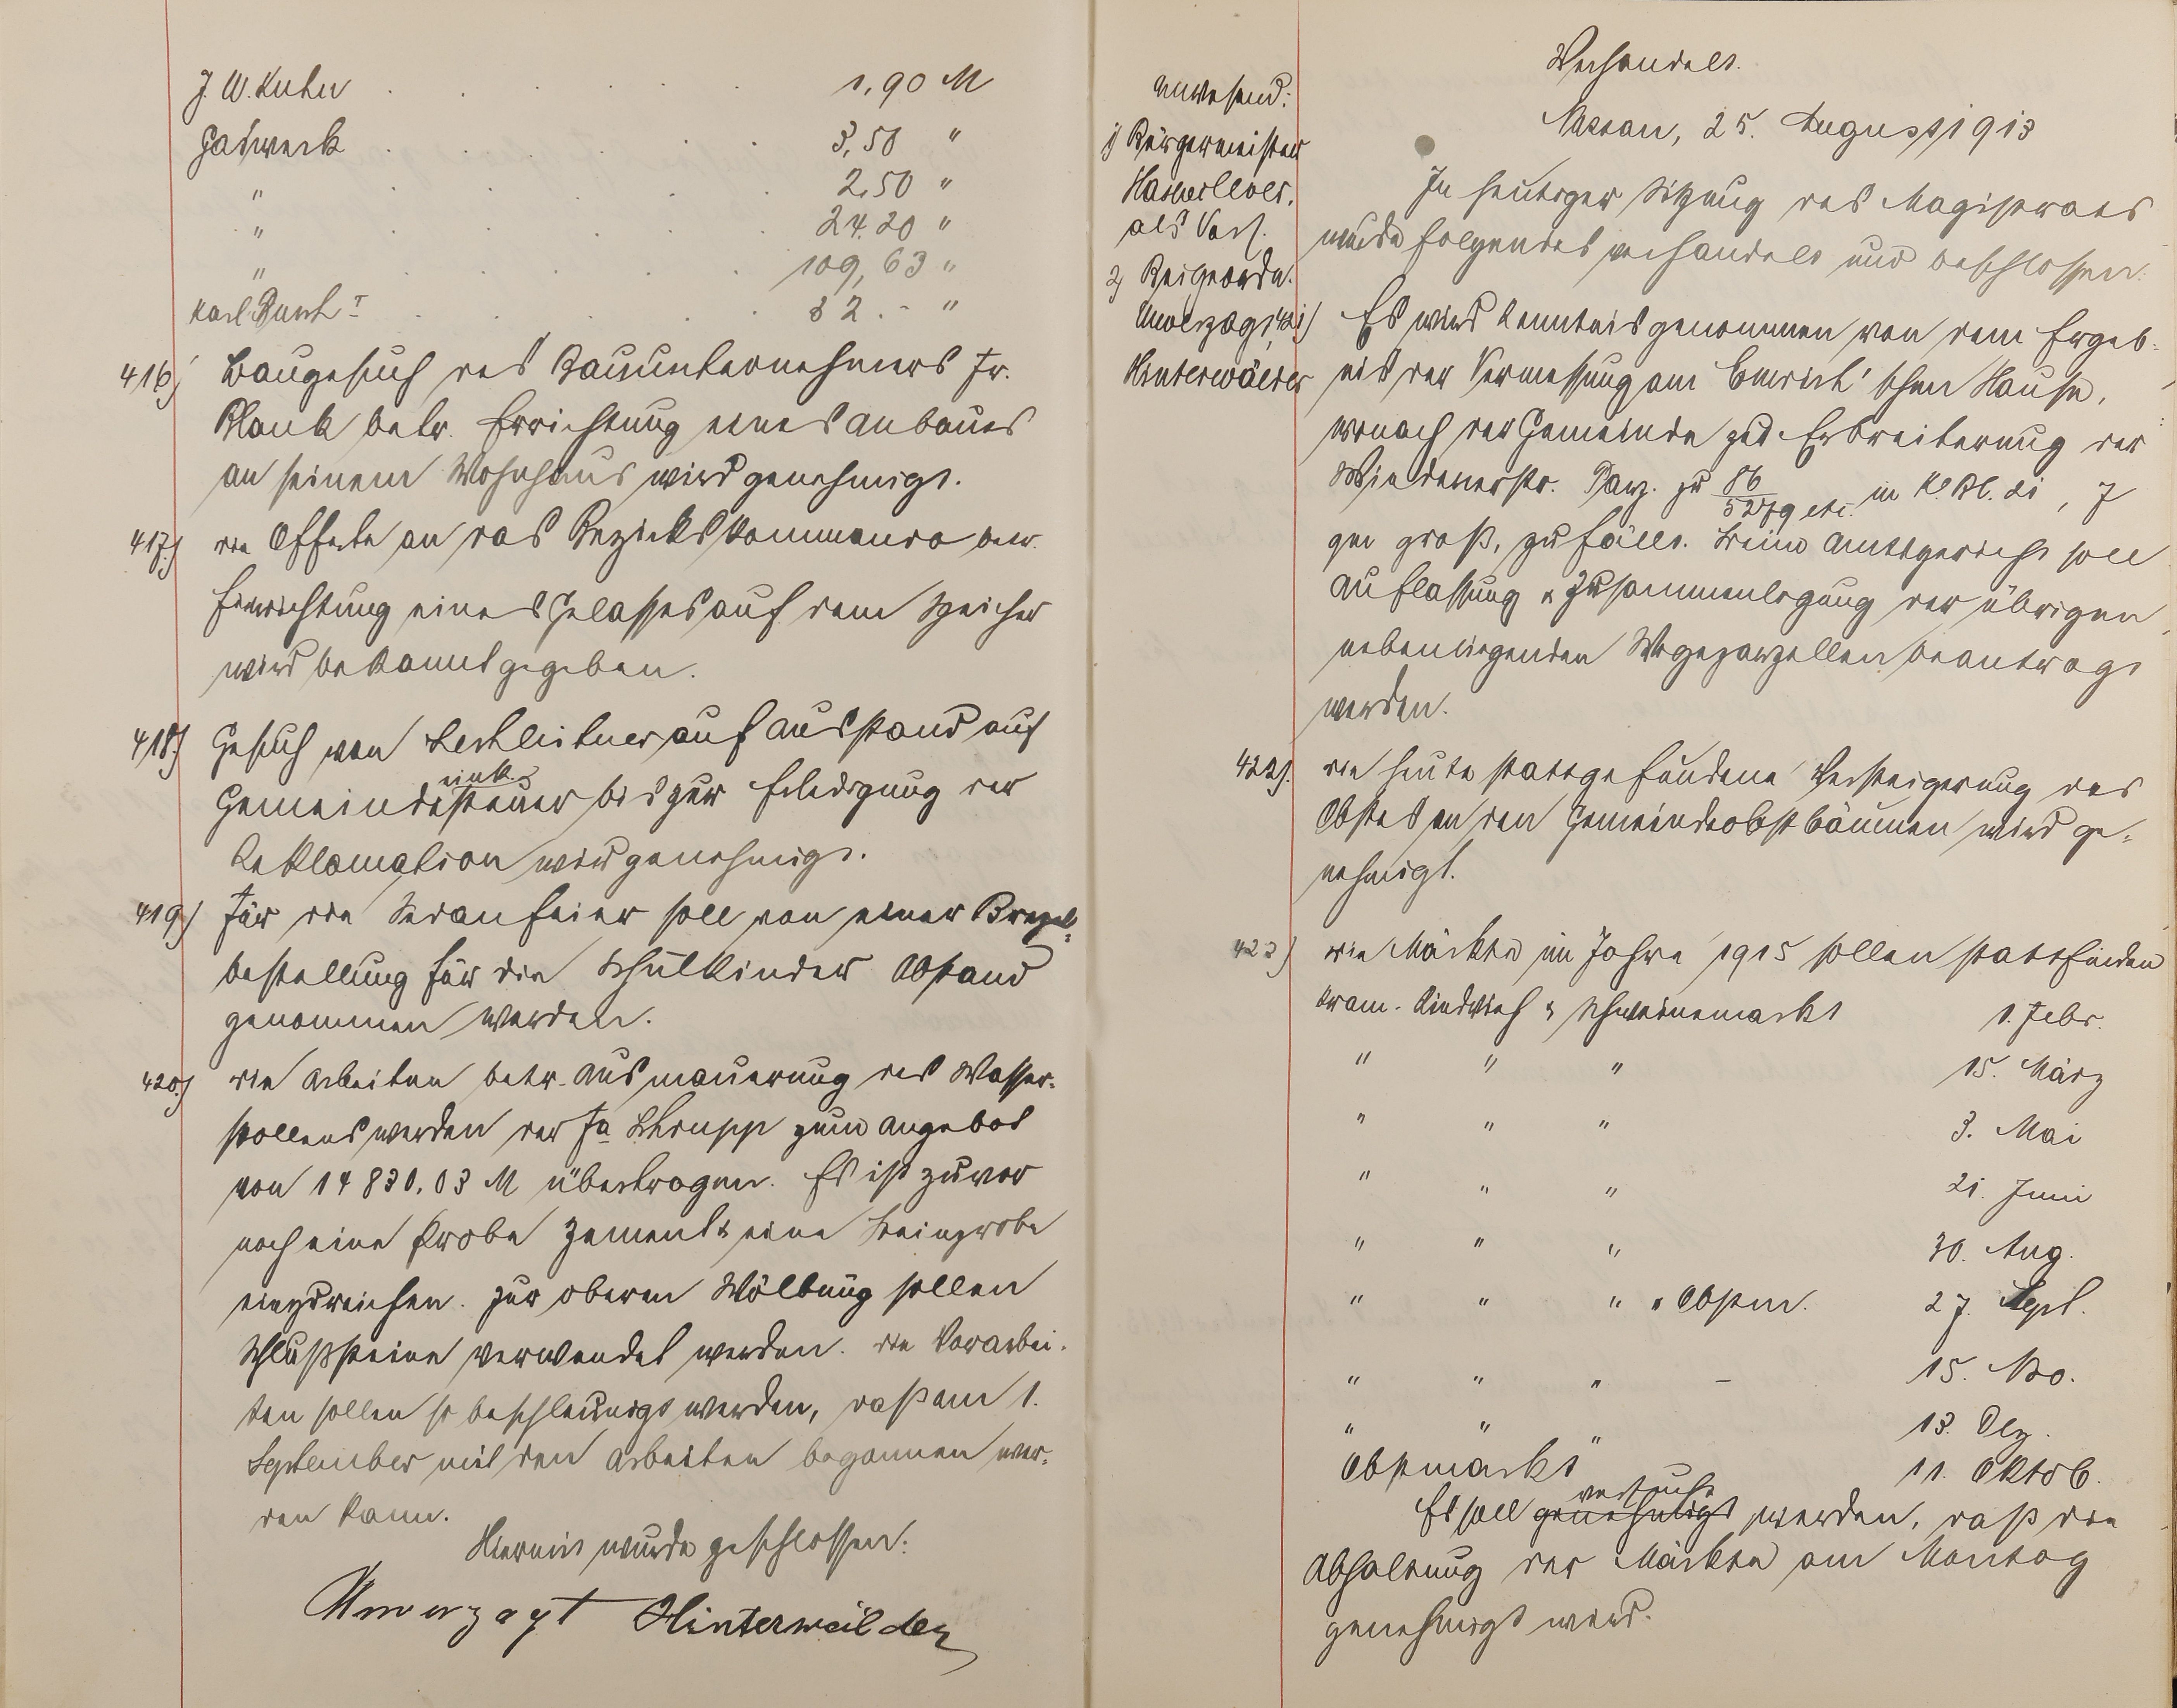 J. W. Kuhn . . . . . 1,90 M
Gaswerk . . . . . 3,50 "
" . . . . . 2,50 "
" . . . . . 24.20 "
" . . . . . 109,63 "
Karl Busch I . . . . . 32.- "
416) Baugesuch des Bauunternehmers Fr.
Plank betr. Errichtung eines Anbaues
an seinem Wohnhaus wird genehmigt.
417.) Die Offerte an das Bezirkskommando betr.
Einrichtung eines Gelasses auf dem Speicher
wird bekanntgegeben.
418.) Gesuch von Lechleitner auf Ausstand auf
Gemeindeeink.steuer bis zur Erledigung der
Reklamation wird genehmigt.
419.) Für die Sedanfeier soll von einer Brezel-
bestellung für die Schulkinder Abstand
genommen werden.
420.) Die Arbeiten betr. Ausmauerung des Wasser-
stollens werden der Fa Schrupp zum Angebot
von 14 830.03 M übertragen. Es ist zuvor
noch eine Probe Zement & eine Steinprobe
einzureichen. Zur oberen Wölbung sollen
Schlußsteine verwendet werden. Die Vorarbei-
ten sollen so beschleunigt werden, daß am 1.
September mit den Arbeiten begonnen wer-
den kann.
Hiermit wurde geschlossen:
Unverzagt Hinterwälder
Verhandelt.
Nassau, 25. August 1913
Anwesend:
1) Bürgermeister
Hasenclever,
als Vors.
2) Beigeordn.
Unverzagt,
Hinterwälder
In heutiger Sitzung des Magistrats
wurde folgendes verhandelt und beschlossen:
421) Es wird Kenntnis genommen von dem Ergeb-
nis der Vermessung am Emrich'schen Hause,
wonach der Gemeinde zur Erbreiterung der
Windenerstr. Parz. zu 86/5279 etc. in K. Bl. 21, 7
qm groß, zufällt. Beim Amtsgericht soll
Auflassung & Zusammenlegung der übrigen
nebenliegenden Wegeparzellen beantragt
werden.
422). Die heute stattgefundene Versteigerung des
Obstes an den Gemeindeobstbäumen wird ge-
nehmigt.
423) Die Märkte im Jahre 1915 sollen stattfinden
Kram- Rindvieh & Schweinemarkt 1. Febr.
" " " 15. März
" " " 3. Mai
" " " 21. Juni
" " " 30. Aug.
" " " " Obstm. 27. Sept.
" " " - 15. No.
" " " 13. Dez.
Obstmarkt 11. Oktob.
Es soll genehmigt versucht werden, daß die
Abhaltung der Märkte am Montag
genehmigt wird.